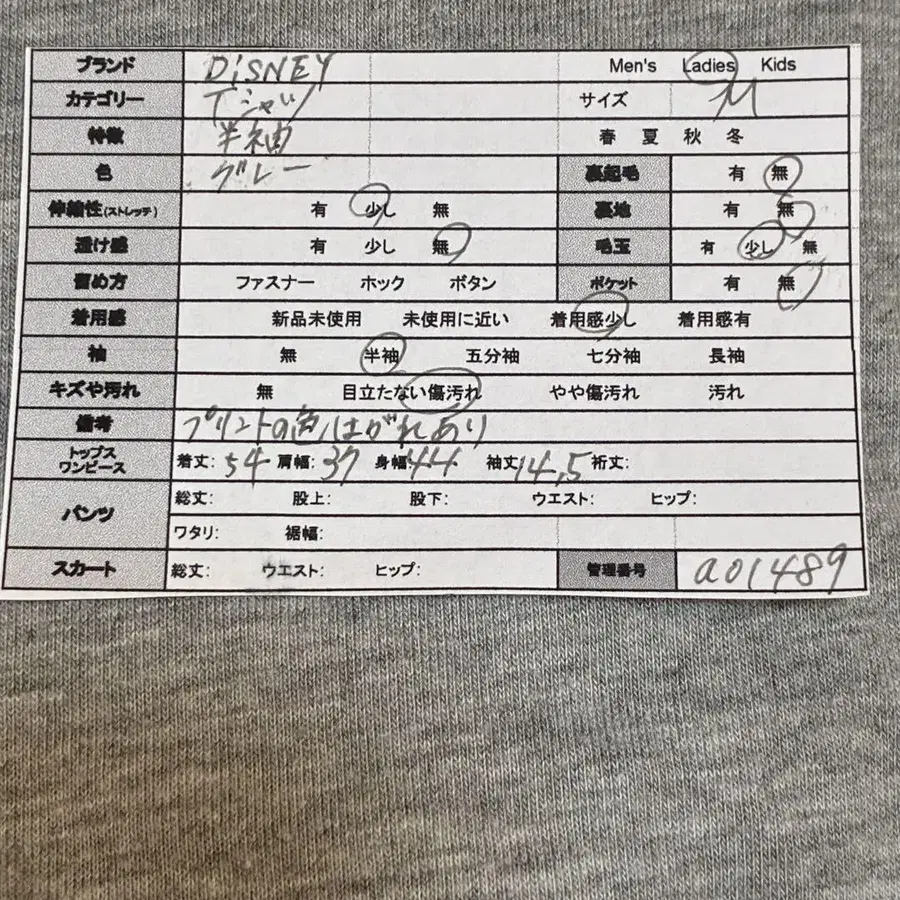 ブランド DiSNEY Men's Ladies Kids
カテゴリー Tシャツ サイズ M
特徴 半袖 春 夏 秋 冬
色 グレー 裏起毛 有 無
伸縮性(ストレッチ) 有 少し 無 裏地 有 無
透け感 有 少し 無 毛玉 有 少し 無
留め方 ファスナー ホック ボタン ポケット 有 無
着用感 新品未使用 未使用に近い 着用感少し 着用感有
袖 無 半袖 五分袖 七分袖 長袖
キズや汚れ 無 目立たない傷汚れ やや傷汚れ 汚れ
備考 プリントの色はがれあり
トップス ワンピース 着丈: 54 肩幅: 37 身幅: 44 袖丈 14,5 裄丈:
パンツ 総丈: 股上: 股下: ウエスト: ヒップ:
ワタリ: 裾幅:
スカート 総丈: ウエスト: ヒップ: 管理番号 a01489